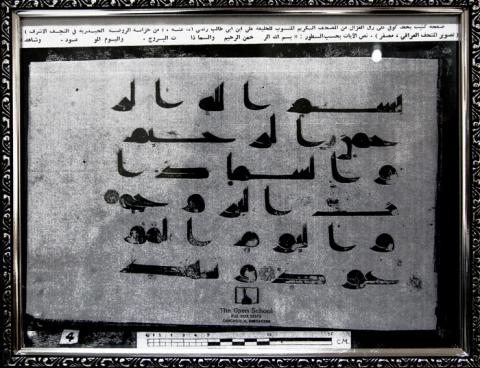 صفحة كتبت بخط كوفي على رق الغزال من المصحف الكريم المنسوب للخليفة علي ابن ابي طالب رضي الله عنه ، ( من خزانة الروضة الحيدرية في النجف الاشرف )
( تصوير المتحف العراقي ، مصغر ) ، نص الآيات بحسب السطور : « بسم الله الر حمن الرحيم والسما ذا ت البروج . واليوم المو عود . وشاهد
بسم الله الر
حمن الرحيم
والسما ذا
ت البروج
واليوم المو
عود وشهد
The Open School
4
CM.